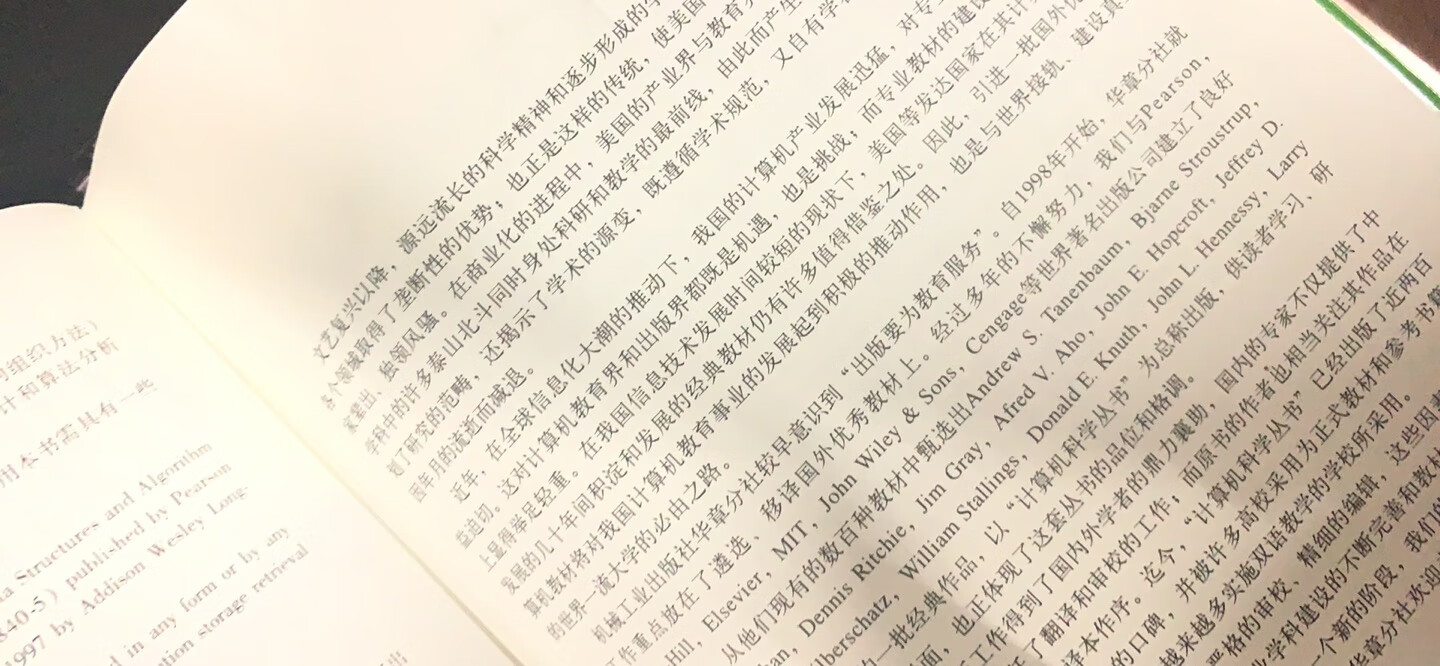 的组织方法）
计和算法分析
用本书需具有一些
Structures and Algorithm
840-5) published by Pearson
1997 by Addison Wesley Long-
in any form or by any
storage retrieval
文艺复兴以降，源远流长的科学精神和逐步形成的学
各个领域取得了垄断性的优势；也正是这样的传统，使美国
家辈出、独领风骚。在商业化的进程中，美国的产业界与教育界
学科中的许多泰山北斗同时身处科研和教学的最前线，由此而产生
划了研究的范畴，还揭示了学术的源变，既遵循学术规范，又自有学者
因年月的流逝而减退。
近年，在全球信息化大潮的推动下，我国的计算机产业发展迅猛，对专业
益迫切。这对计算机教育界和出版界都既是机遇，也是挑战；而专业教材的建设
上显得举足轻重。在我国信息技术发展时间较短的现状下，美国等发达国家在其计算
发展的几十年间积淀和发展的经典教材仍有许多值得借鉴之处。因此，引进一批国外优
算机教材将对我国计算机教育事业的发展起到积极的推动作用，也是与世界接轨、建设真正
的世界一流大学的必由之路。
机械工业出版社华章分社较早意识到“出版要为教育服务”。自1998年开始，华章分社就
工作重点放在了遴选、移译国外优秀教材上。经过多年的不懈努力，我们与Pearson,
Hill, Elsevier, MIT, John Wiley & Sons, Cengage等世界著名出版公司建立了良好
从他们现有的数百种教材中甄选出Andrew S. Tanenbaum, Bjarne Stroustrup,
Dennis Ritchie, Jim Gray, Afred V. Aho, John E. Hopcroft, Jeffrey D.
William Stallings, Donald E. Knuth, John L. Hennessy, Larry
的一批经典作品，以“计算机科学丛书”为总称出版，供读者学习、研
也正体现了这套丛书的品位和格调。
工作得到了国内外学者的鼎力襄助，国内的专家不仅提供了中
了翻译和审校的工作；而原书的作者也相当关注其作品在
译本作序。迄今，“计算机科学丛书”已经出版了近两百
的口碑，并被许多高校采用为正式教材和参考书籍
越来越多实施双语教学的学校所采用。
严格的审校、精细的编辑，这些因素
学科建设的不断完善和教材
个新的阶段，我们的
章分社欢迎